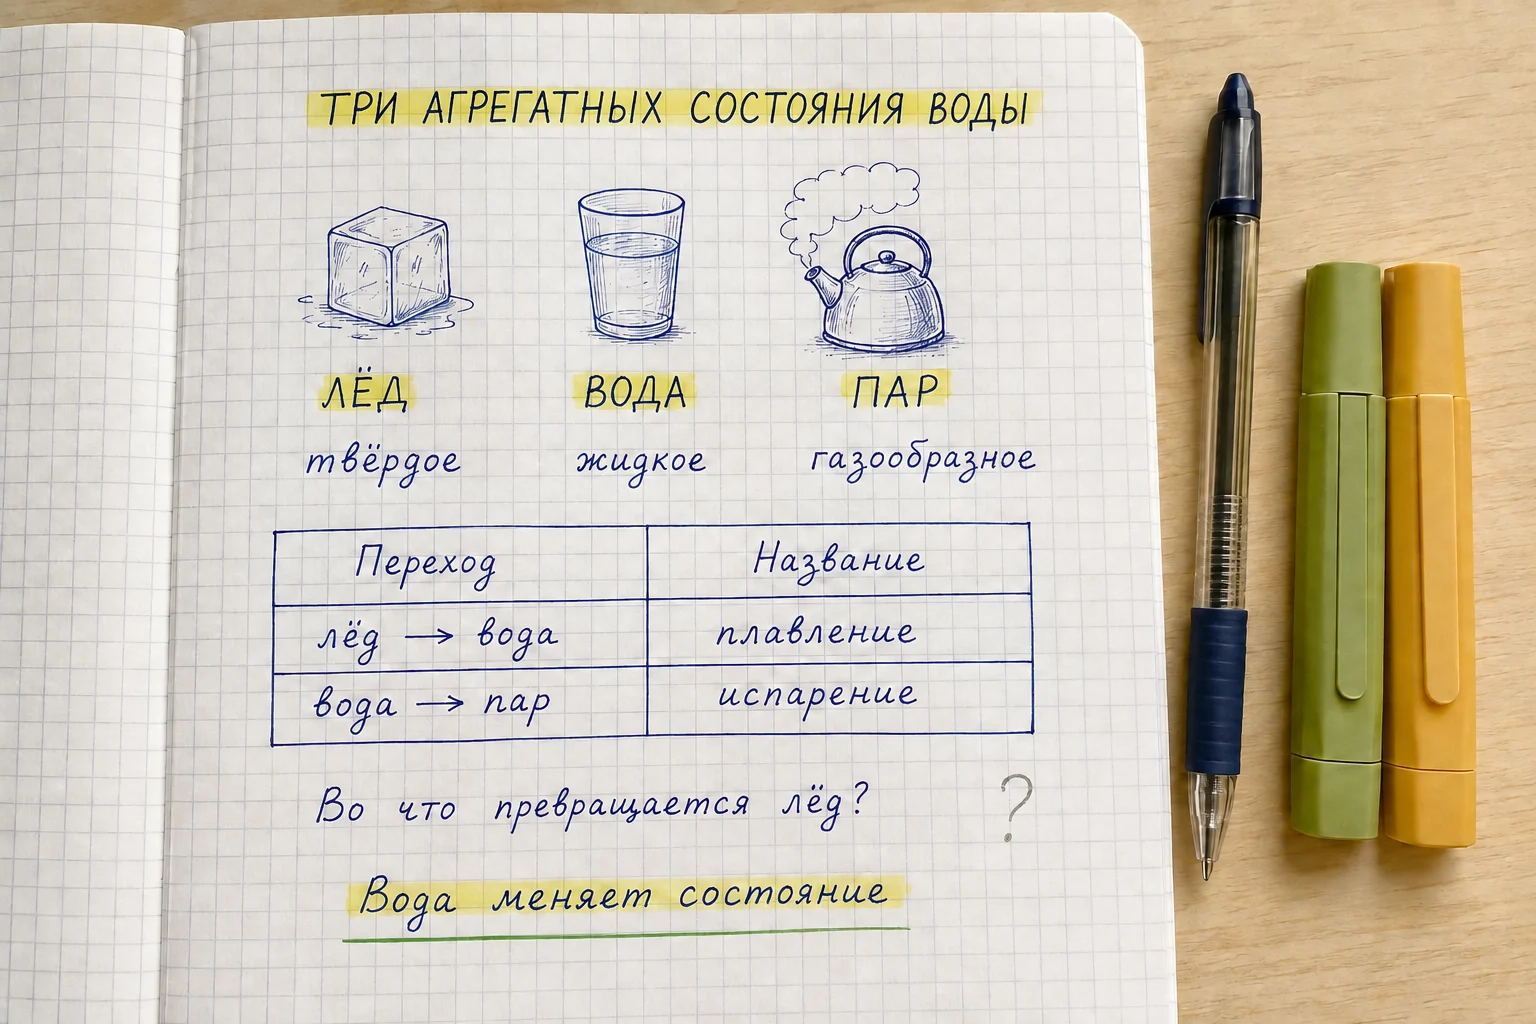 ТРИ АГРЕГАТНЫХ СОСТОЯНИЯ ВОДЫ
ЛЁД ВОДА ПАР
твёрдое жидкое газообразное
Переход Название
лёд → вода плавление
вода → пар испарение
Во что превращается лёд? ?
Вода меняет состояние